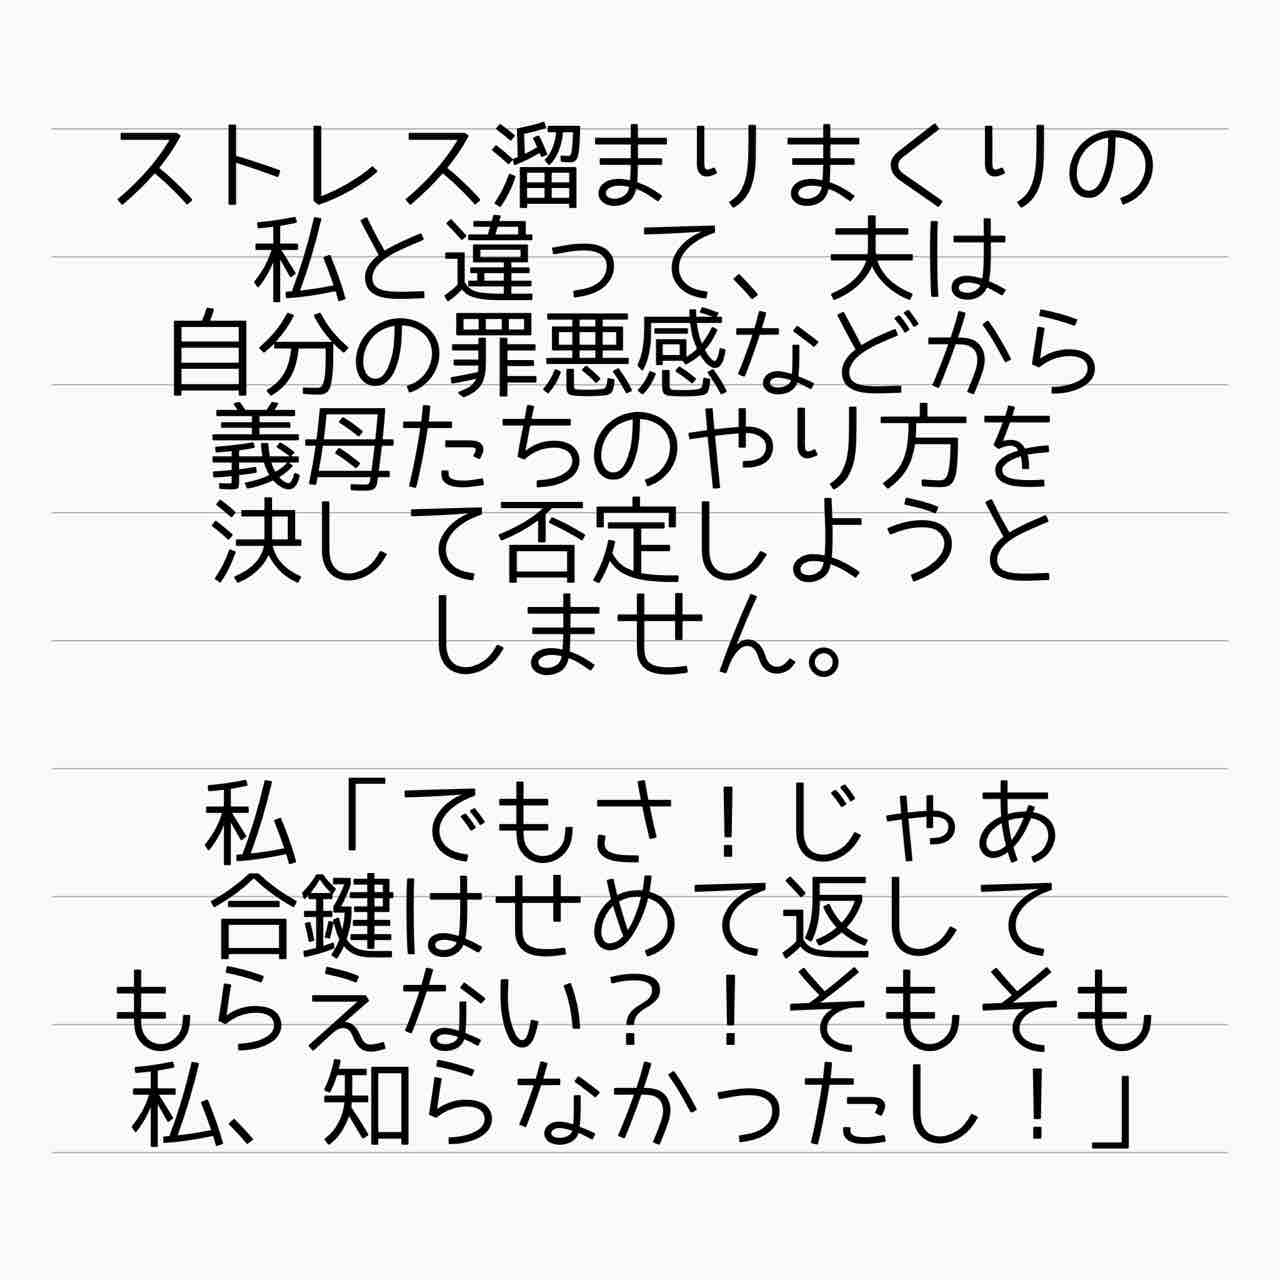 ストレス溜まりまくりの
私と違って、夫は
自分の罪悪感などから
義母たちのやり方を
決して否定しようと
しません。
私「でもさ！じゃあ
合鍵はせめて返して
もらえない？！そもそも
私、知らなかったし！」